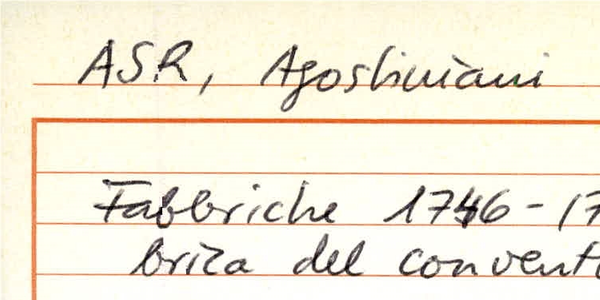 ASR, Agostiniani
Fabbriche 1746-17
brica del convento